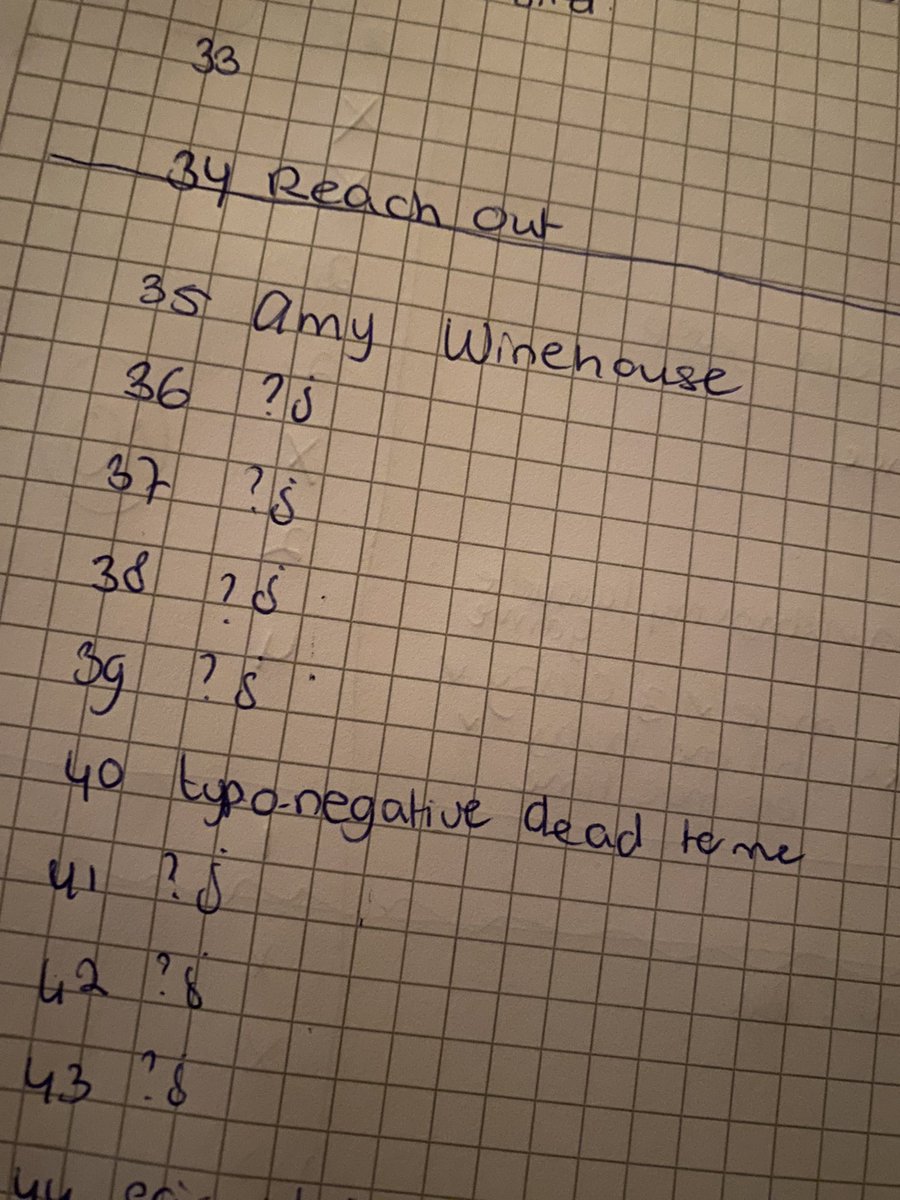 33
34 Reach Out
35 Amy Winehouse
36 ?j
37 ?j
38 ?j
39 ?j
40 typo-negative dead te me
41 ?j
42 ?j
43 ?j
44